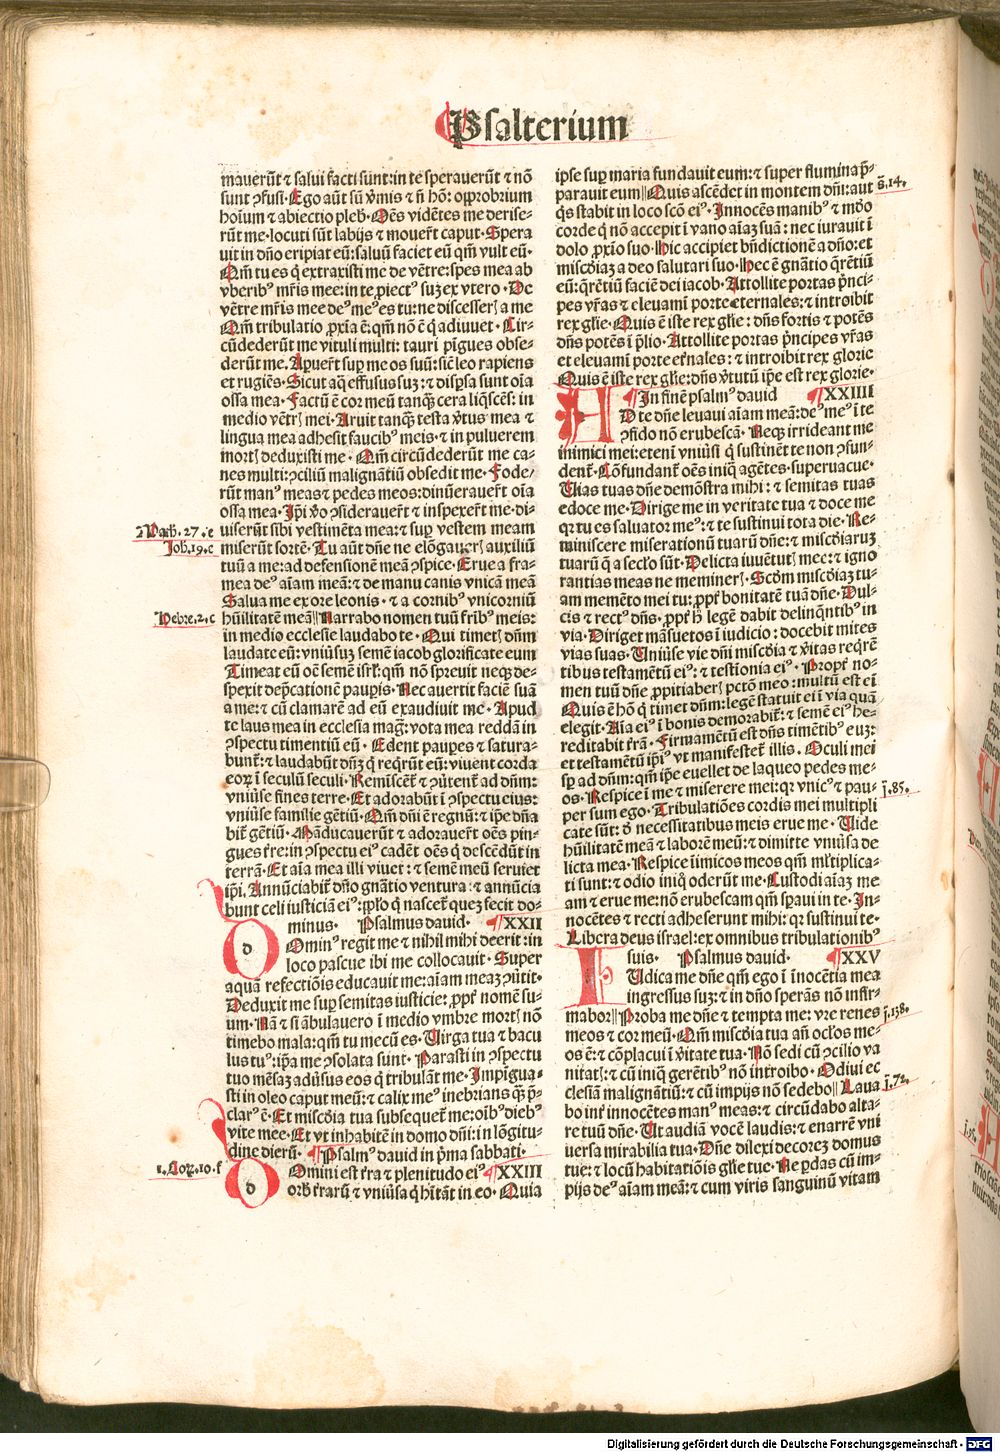 Psalterium
mauerūt ⁊ salui facti sunt: in te sperauerūt ⁊ nō
sunt ꝯfusi. Ego aūt sū v̄mis ⁊ n̄ hō: opprobrium
hoīum ⁊ abiectio pleb. Oēs vidētes me derise-
rūt me. locuti sūt labijs ⁊ mouer̄t caput. Spera
uit in dn̄o eripiat eū: saluū faciet eū qm̄ vult eū.
Qm̄ tu es q̄ extraxisti me de vētre: spes mea ab
vberibꝰ mr̄is mee: in te ꝓiectꝰ suꝫ ex vtero. De
vētre mr̄is mee deꝰ meꝰ es tu: ne discesserꝭ a me
Qm̄ tribulatio ꝓxīa ē: qm̄ nō ē q̄ adiuuet. Cir-
cūdederūt me vituli multi: tauri pīgues obse-
derūt me. Aꝑuer̄t suꝑ me os suū: sic̄ leo rapiens
et rugiēs. Sicut aq̄ effusus suꝫ: ⁊ disꝑsa sunt oīa
ossa mea. Factū ē cor meū tanqꝫ cera liq̄scēs: in
medio vētrꝭ mei. Aruit tanqꝫ testa v̄tus mea ⁊
lingua mea adhesit faucibꝰ meis: ⁊ in puluerem
mortꝭ deduxisti me. Qm̄ circūdederūt me ca-
nes multi: ꝯciliū malignātiū obsedit me. Fode-
rūt manꝰ meas ⁊ pedes meos: dinūerauer̄t oīa
ossa mea. Ip̄i v̄o ꝯsiderauer̄t ⁊ inspexer̄t me. di-
uiserūt sibi vestimēta mea: ⁊ suꝑ vestem meam
miserūt sortē. Tu aūt dn̄e ne elōgauerꝭ auxiliū
tuū a me: ad defensionē meā ꝯspice. Erue a fra-
mea deꝰ aīam meā: ⁊ de manu canis vnicā meā
Salua me ex ore leonis. ⁊ a cornibꝰ vnicorniū
hūilitatē meā || Narrabo nomen tuū fr̄ibꝰ meis:
in medio ecclesie laudabo te. Qui timetꝭ dn̄m
laudate eū: vniūsuꝫ semē iacob glorificate eum
Timeat eū oē semē isrl̄: qm̄ nō spreuit neqꝫ de-
spexit dep̄cationē pauꝑis. Nec auertit faciē suā
a me: ⁊ cū clamarē ad eū exaudiuit me. Apud
te laus mea in ecclesia mag̅: vota mea reddā in
ꝯspectu timentiū eū. Edent pauꝑes ⁊ satura-
bunt̄: ⁊ laudabūt dn̄ꝫ q̄ req̄rūt eū: viuent corda
eoꝝ ī seculū seculi. Remīscēt̄ ⁊ ꝯuertent̄ ad dn̄m:
vniūse fines terre. Et adorabūt ī ꝯspectu eius:
vniūse familie gētiū. Qm̄ dn̄i ē regnū: ⁊ ip̄e dn̄a
bit̄ gētiū. Māducauerūt ⁊ adorauer̄t oēs pin-
gues t̄re: in ꝯspectu eiꝰ cadēt oēs q̄ descēdūt in
terrā. Et aīa mea illi viuet: ⁊ semē meū seruiet
ip̄i. Annūciabit̄ dn̄o gnātio ventura: ⁊ annūcia
bunt celi iusticiā eiꝰ: pꝉo q̄ nascet̄ quez fecit do-
minus. Psalmus dauid. XXII
d Ominꝰ regit me ⁊ nihil mihi deerit: in
loco pascue ibi me collocauit. Super
aquā refectiōis educauit me: aīam meaꝫ ꝯūtit.
Deduxit me suꝑ semitas iusticie: ꝓpt̄ nomē su-
um. Nā ⁊ si ābulauero ī medio vmbre mortꝭ nō
timebo mala: qm̄ tu mecū es. Uirga tua ⁊ bacu
lus tuꝰ: ip̄a me ꝯsolata sunt. Parasti in ꝯspectu
tuo mēsaꝫ adūsus eos q̄ tribulāt me. Impīgua-
sti in oleo caput meū: ⁊ calix meꝰ inebrians qꝫ p̄-
clarꝰ ē. Et miscḋia tua subsequet̄ me: oībꝰ diebꝰ
vite mee. Et vt inhabitē in domo dn̄i: in lōgitu-
dinē dierū. Psalmꝰ dauid in p̄ma sabbati.
d Omini est t̄ra ⁊ plenitudo eiꝰ XXIII
orbꝭ t̄rarū ⁊ vniūsa q̄ hītāt in eo. Quia
Math. 27. e
Joh. 19. c
Hebre. 2. c
1. Cor. 10. f
ipse suꝑ maria fundauit eum: ⁊ super flumina p̄-
parauit eum || Quis ascēdet in montem dn̄i: aut
q̄s stabit in loco scō eiꝰ. Innocēs manibꝰ ⁊ mūdo
corde q̄ nō accepit ī vano aīaꝫ suā: nec iurauit ī
dolo ꝓxīo suo. Hic accipiet bn̄dictionē a dn̄o: et
miscḋiaꝫ a deo salutari suo. Hec ē gnātio q̄rētiū
eū: q̄rētiū faciē dei iacob. Attollite portas p̄nci-
pes vr̄as ⁊ eleuamī porte eternales: ⁊ introibit
rex gl̄ie. Quis ē iste rex gl̄ie: dn̄s fortis ⁊ potēs
dn̄s potēs ī p̄lio. Attollite portas p̄ncipes vr̄as
et eleuamī porte et̄nales: ⁊ introibit rex glorie
Quis ē iste rex gl̄ie: dn̄s v̄tutū ip̄e est rex glorie.
In finē psalmꝰ dauid XXIIII
A D te dn̄e leuaui aīam meā: deꝰ meꝰ ī te
ꝯfido nō erubescā. Neqꝫ irrideant me
inimici mei: etenī vniūsi q̄ sustinēt te non ꝯfun-
dent̄. Cōfundant̄ oēs iniq̄ agētes. superuacue.
Uias tuas dn̄e demōstra mihi: ⁊ semitas tuas
edoce me. Dirige me in veritate tua ⁊ doce me
qꝛ tu es saluator meꝰ: ⁊ te sustinui tota die. Re-
miniscere miserationū tuarū dn̄e: ⁊ miscḋiaruꝫ
tuarū q̄ a secl̄o sūt. Delicta iuuētutꝭ mee: ⁊ igno
rantias meas ne meminerꝭ. Scḋm miscḋiaꝫ tu-
am memēto mei tu: ꝓpt̄ bonitatē tuā dn̄e. Dul-
cis ⁊ rectꝰ dn̄s. ꝓpt̄ hͦ legē dabit delinq̄ntibꝰ in
via. Diriget māsuetos ī iudicio: docebit mites
vias suas. Uniūse vie dn̄i miscḋia ⁊ v̄itas req̄rē
tibus testamētū eiꝰ: ⁊ testīonia eiꝰ. Propt̄ no-
men tuū dn̄e ꝓpitiaberꝭ pctō meo: multū est eī
Quis ē hō q̄ timet dn̄m: legē statuit ei ī via quā
elegit. Aīa eiꝰ ī bonis demorabit̄: ⁊ semē eiꝰ he-
reditabit t̄rā. Firmamētū est dn̄s timētibꝰ euꝫ:
et testamētū ip̄iꝰ vt manifestet̄ illis. Oculi mei
sꝑ ad dn̄m: qm̄ ip̄e euellet de laqueo pedes me-
os. Respice ī me ⁊ miserere mei: qꝛ vnicꝰ ⁊ pau-
per sum ego. Tribulatiōes cordis mei multipli
cate sūt: de necessitatibus meis erue me. Uide
hūilitatē meā ⁊ laborē meū: ⁊ dimitte vniūsa de
licta mea. Respice īimicos meos qm̄ ml̄tiplica-
ti sunt: ⁊ odio iniq̄ oderūt me. Custodi aīaꝫ me
am ⁊ erue me: nō erubescam qm̄ sꝑaui in te. In-
nocētes ⁊ recti adheserunt mihi: qꝛ sustinui te.
Libera deus israel: ex omnibus tribulationibꝰ
suis. Psalmus dauid. XXV
I Udica me dn̄e qm̄ ego ī īnocētia mea
ingressus suꝫ: ⁊ in dn̄o sperās nō infir-
mabor || Proba me dn̄e ⁊ tempta me: vre renes
meos ⁊ cor meū. Qm̄ miscḋia tua an̄ ocl̄os me-
os ē: ⁊ cōplacui ī v̄itate tua. Nō sedi cū ꝯcilio va
nitatꝭ: ⁊ cū iniq̄ gerētibꝰ nō introibo. Odiui ec
clesiā malignātiū: ⁊ cū impijs nō sedebo || Laua
bo int̄ innocētes manꝰ meas: ⁊ circūdabo alta-
re tuū dn̄e. Ut audiā vocē laudis: ⁊ enarrē vni
uersa mirabilia tua. Dn̄e dilexi decorez domus
tue: ⁊ locū habitatiōis gl̄ie tue. Ne ꝑdas cū im-
pijs deꝰ aīam meā: ⁊ cum viris sanguinū vitam
s̄. 14.
j̄. 85.
j̄. 138.
j̄. 72.
Digitalisierung gefördert durch die Deutsche Forschungsgemeinschaft - DFG